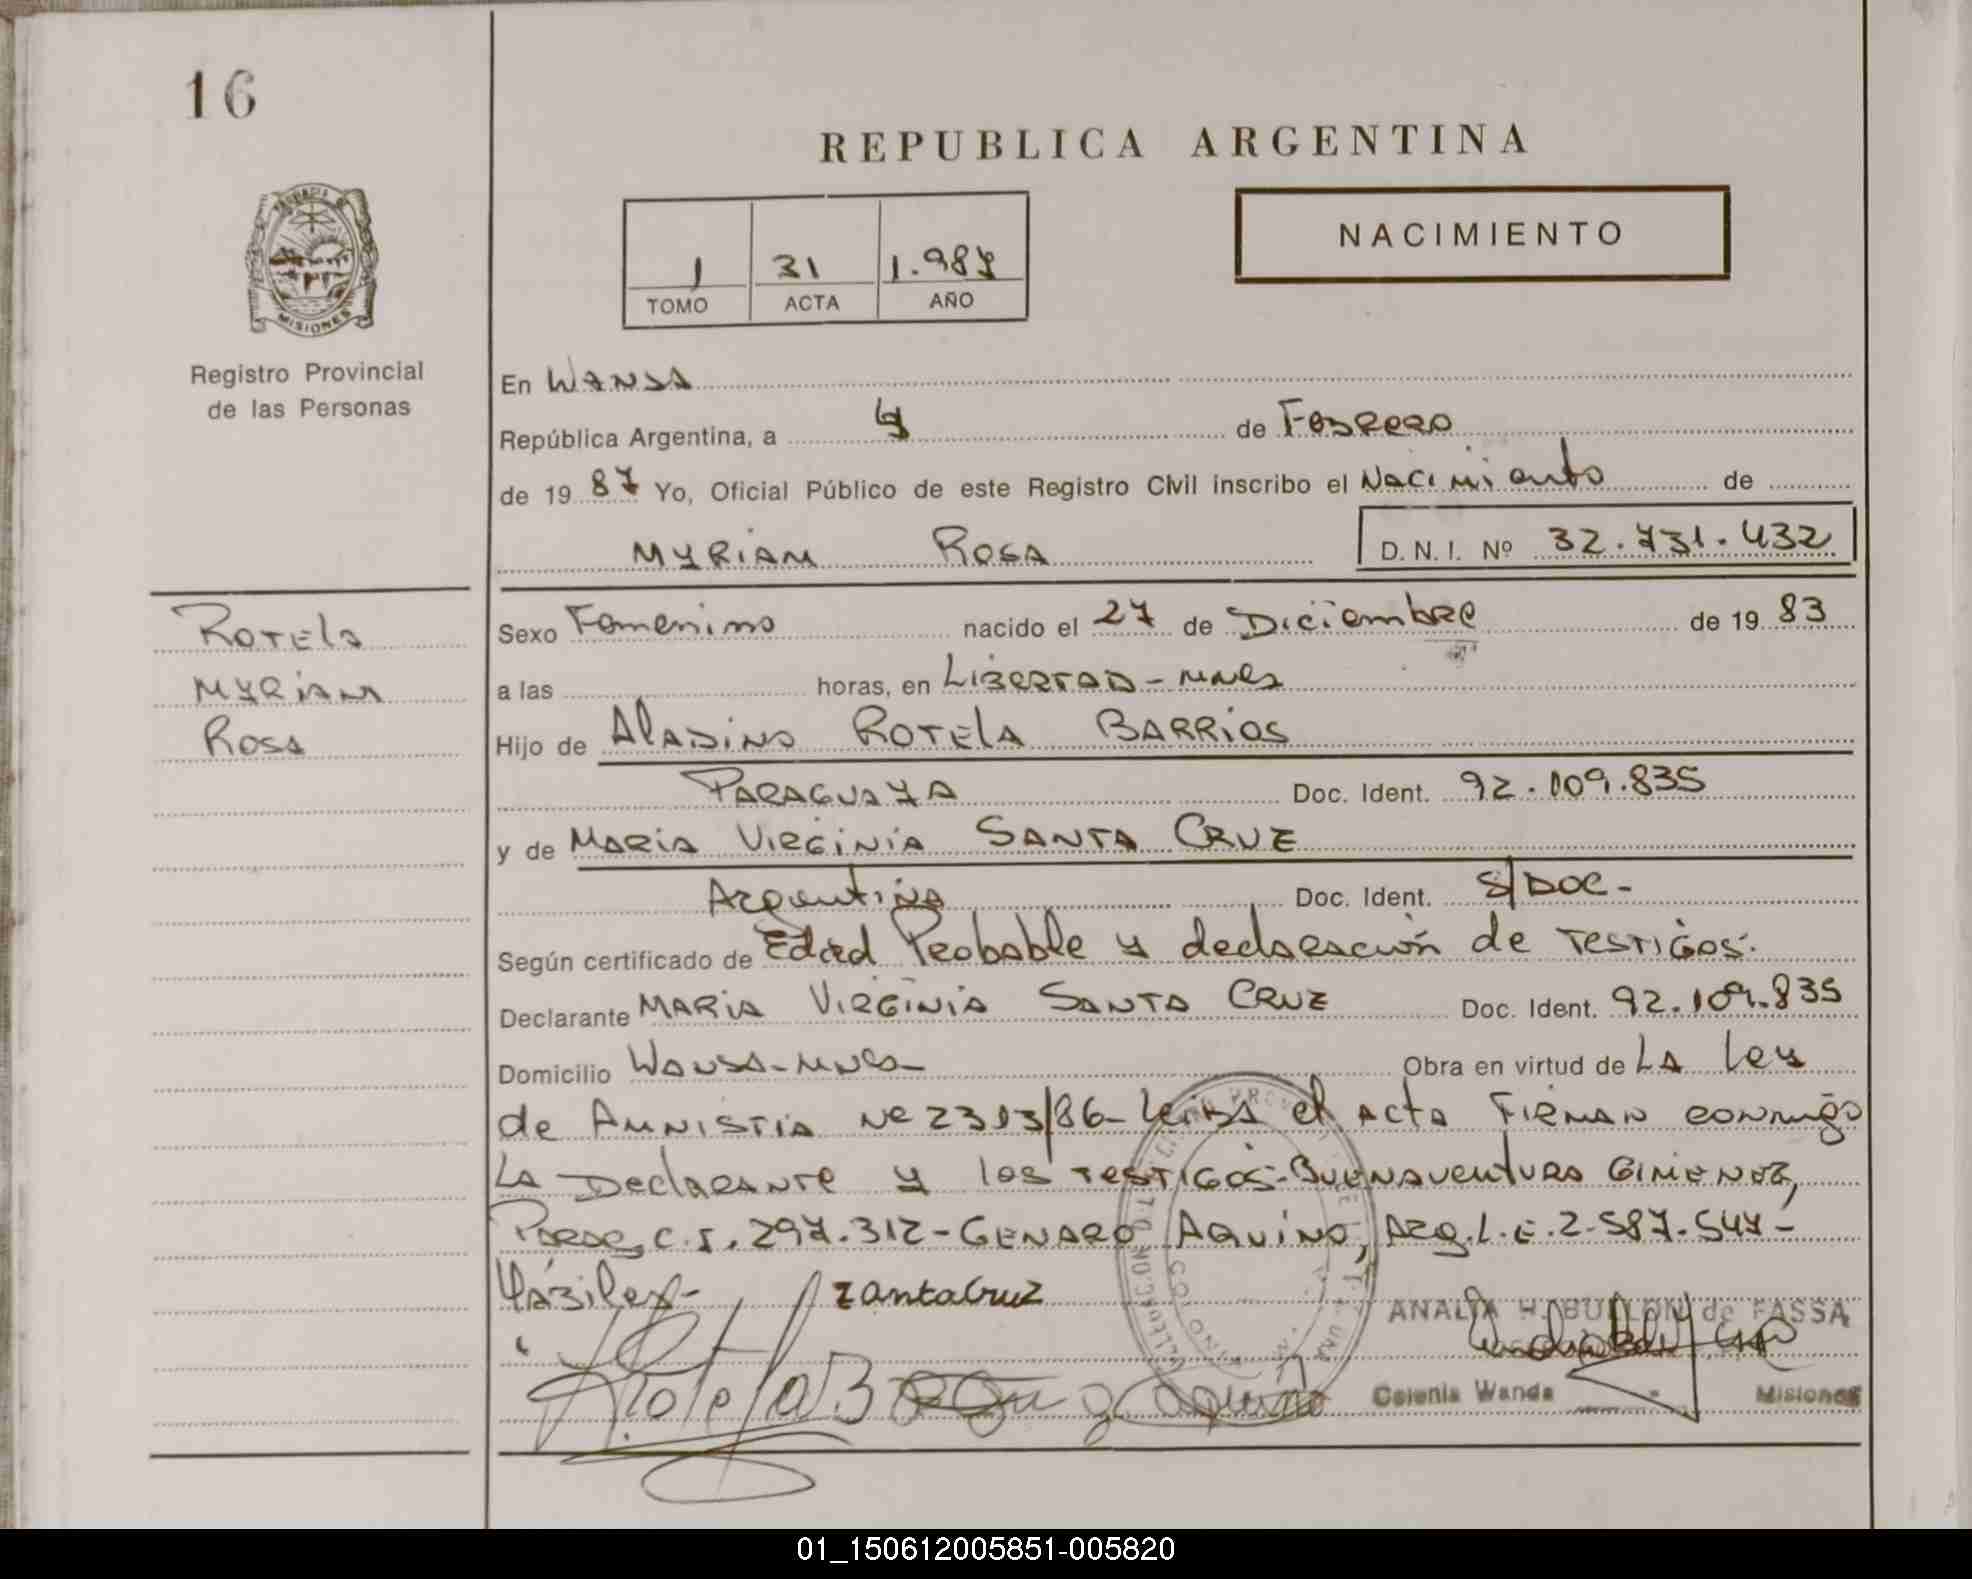 16
REPUBLICA ARGENTINA
NACIMIENTO
1 31 1.987
TOMO ACTA AÑO
MISIONES
Registro Provincial
de las Personas
En WANDA
República Argentina, a 4 de Febrero
de 19 87 Yo, Oficial Público de este Registro Civil inscribo el Nacimiento de
MYRIAM ROSA
D. N. I. Nº 32.731.432
Rotela
Myriam
Rosa
Sexo Femenino nacido el 27 de Diciembre de 19 83
a las horas, en Libertad - Mnes
Hijo de Aladino Rotela Barrios
Paraguaya Doc. Ident. 92.109.835
y de Maria Virginia Santa Cruz
Argentina Doc. Ident. S/Doc-
Según certificado de Edad Probable y declaración de testigos.
Declarante Maria Virginia Santa Cruz Doc. Ident. 92.109.835
Domicilio Wanda-Mnes- Obra en virtud de La Ley
de Amnistia Nº 2313/86- Leida el acta Firman conmigo
La Declarante y los testigos-Buenaventura Gimenez,
Parag. C.I. 297.312-Genaro Aquino, Arg. L.E. 2.587.547-
zantacruz
ANALIA H. BULLON de FASSA
Rotela B
Aquino
Colonia Wanda Misiones
01_150612005851-005820